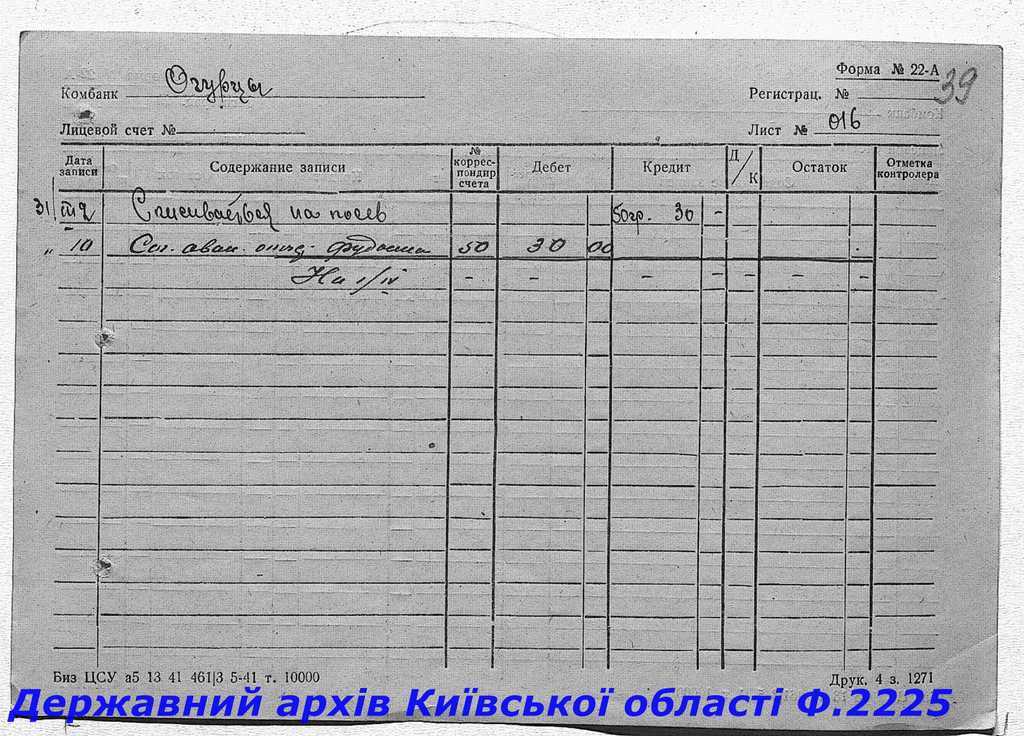 Форма № 22-А
39
Комбанк Огурцы
Регистрац. №
Лицевой счет №
Лист № 016
Дата записи
Содержание записи
№ коррес-пондир счета
Дебет
Кредит
Д/К
Остаток
Отметка контролера
31 Списывается на посев 50гр. 30 -
" 10 Сог. аван. 50 30 00
На I/IV - - - - - - -
Биз ЦСУ а5 13 41 461|3 5-41 т. 10000
Друк. 4 з. 1271
Державний архів Київської області Ф.2225